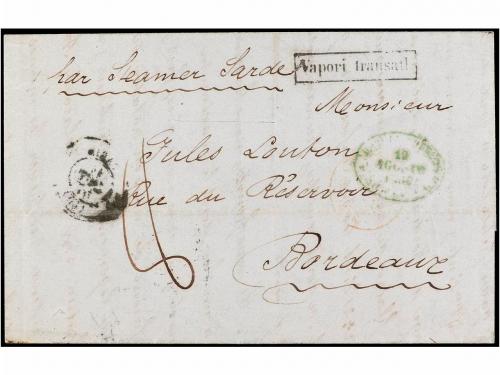 par Seamer Sarde
Vapori transatl
Monsieur
Jules Louton
Rue du Réservoir
Bordeaux
19
AGOSTO